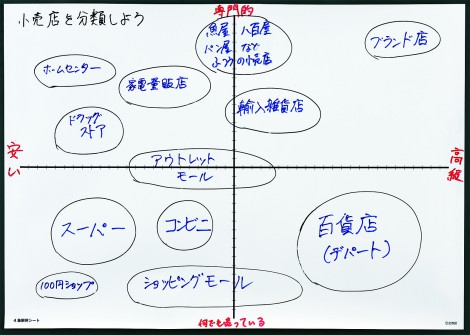 小売店を分類しよう
専門的
魚屋 八百屋
パン屋 など
ふつうの小売店
ブランド店
ホームセンター
家電量販店
輸入雑貨店
ドラッグ
ストア
安い
高級
アウトレット
モール
スーパー
コンビニ
百貨店
(デパート)
100円ショップ
ショッピングモール
何でも売っている